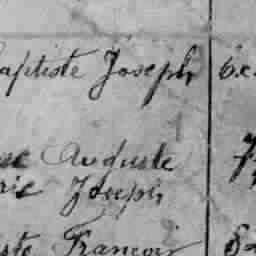 aptiste Joseph
Auguste
rie Joseph
ste François